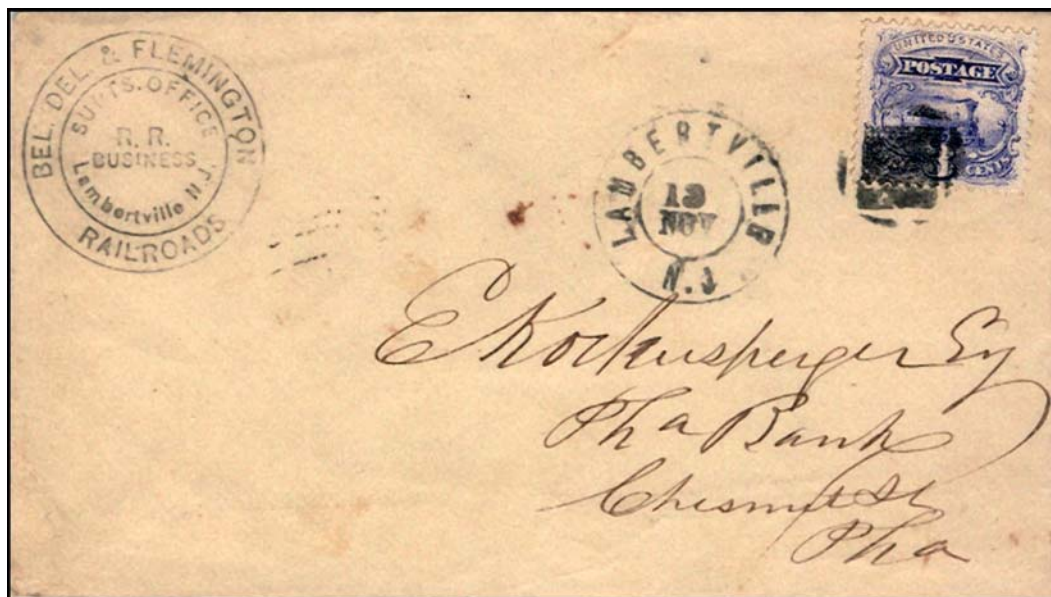 BEL. DEL. & FLEMINGTON
RAILROADS
SUPTS. OFFICE
R. R.
BUSINESS
Lambertville N.J.
LAMBERTVILLE
19
NOV
N.J
UNITED STATES
POSTAGE
CENTS
Esq
Pha Bank
Chesnut St
Pha